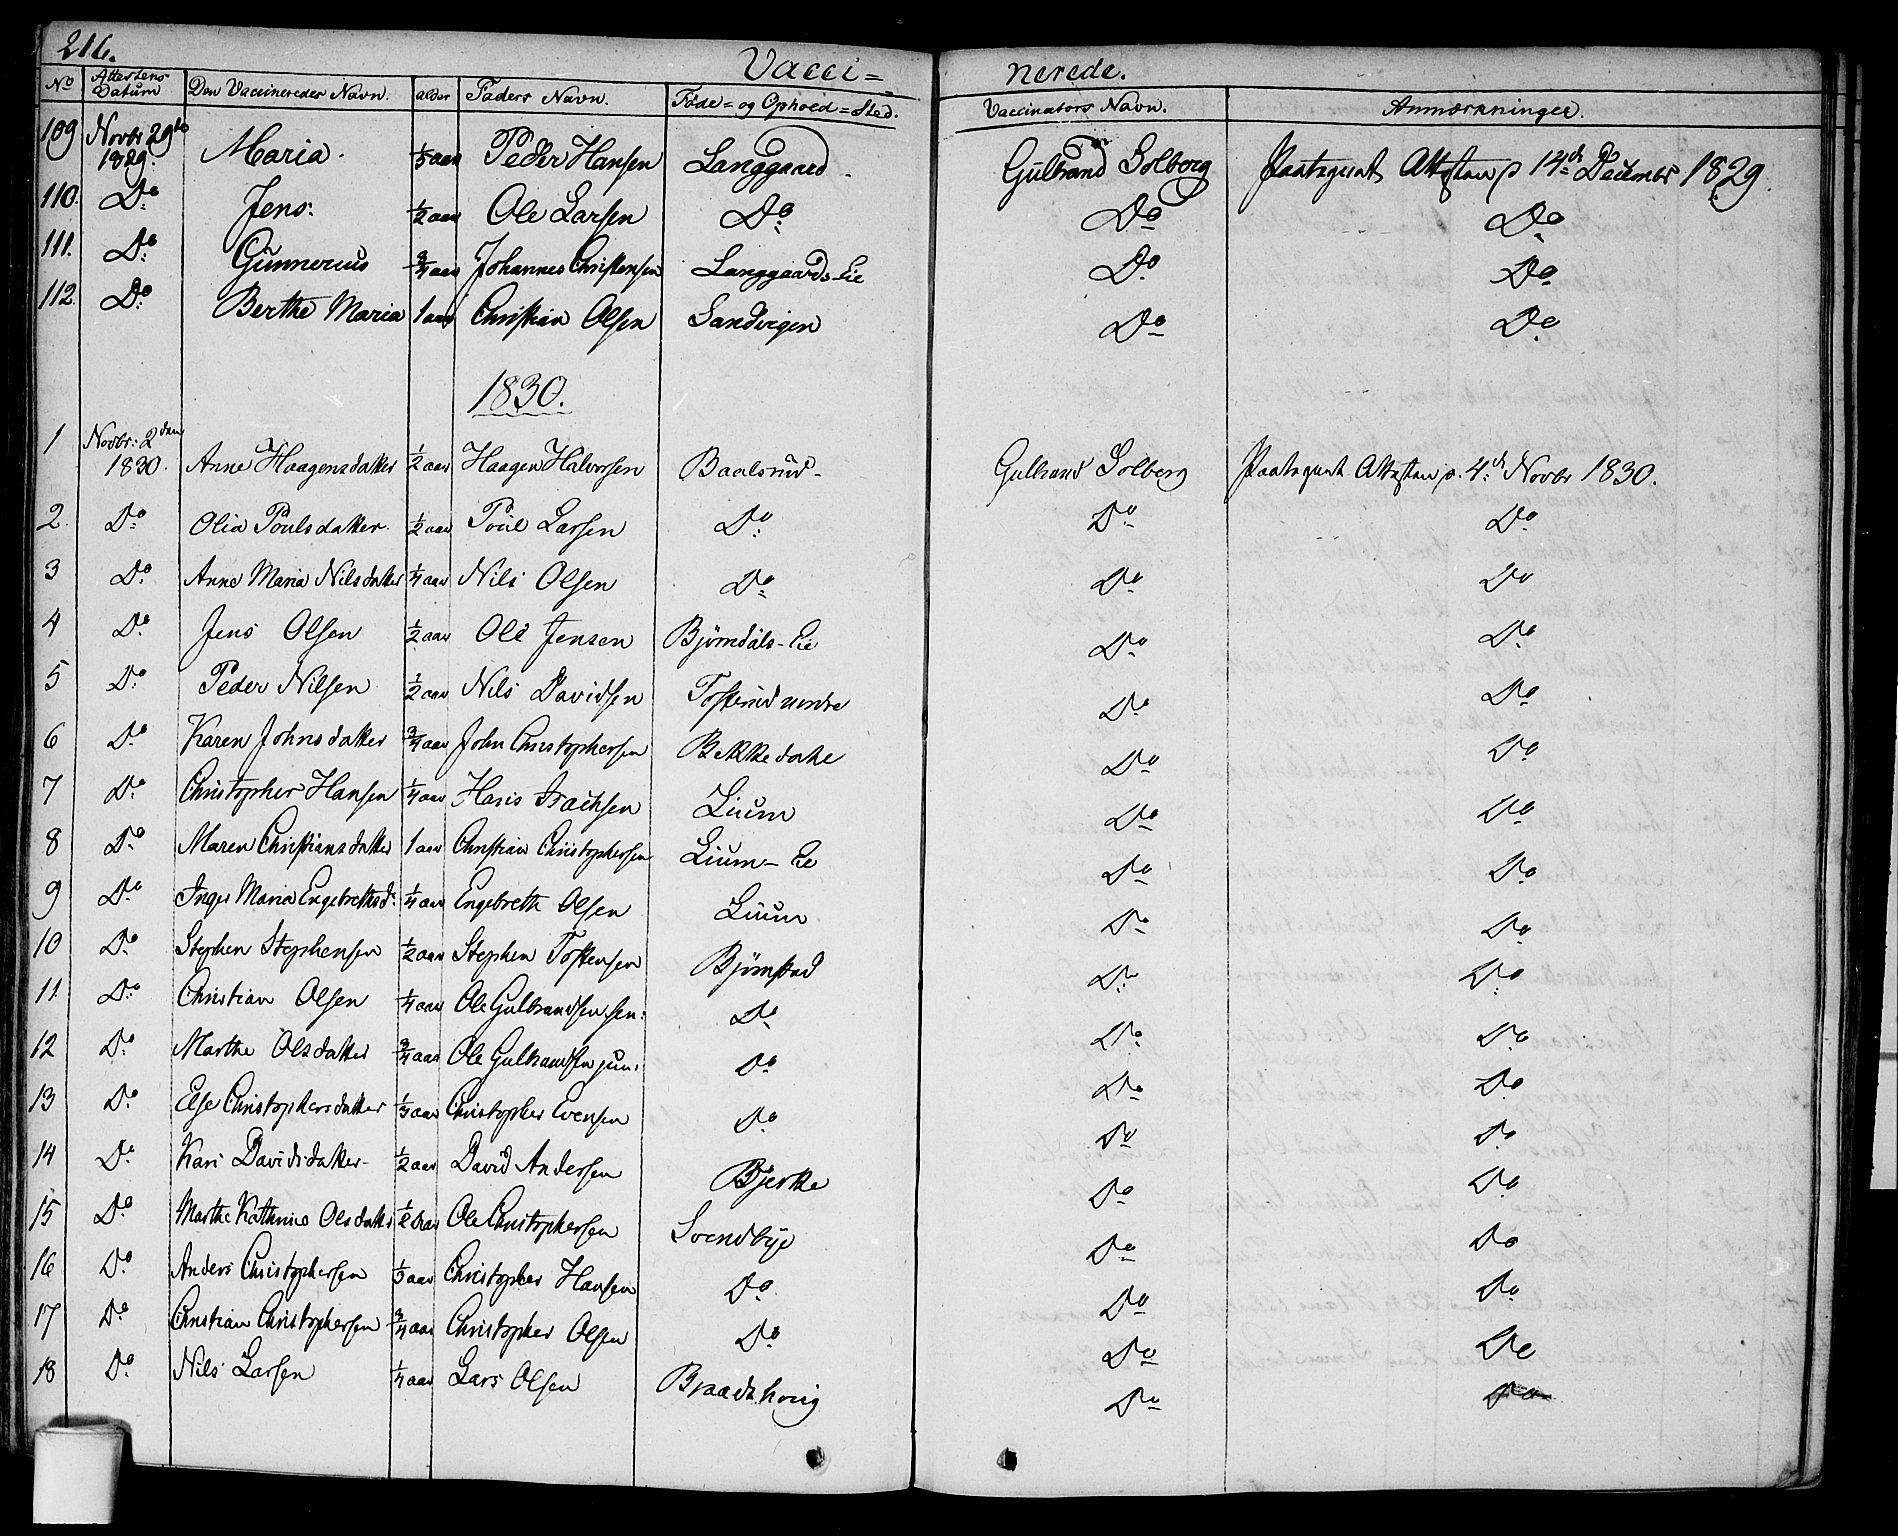 216.
Vacci= nerede.
No Attestens Datum Den Vaccineredes Navn. alder Faders Navn. Føde= og Ophold=Sted. Vaccinators Navn. Anmærkninger.
109 Novbr 29de 1829. Maria. 1/3 aar Peder Hansen Langgaard. Gulbrand Solberg Paategnet Attesten d 14de December 1829.
110. Do Jens. 1/2 aar Ole Larsen Do Do Do
111. Do Gunnerius 3/4 aar Johannes Christensen Langgaards-Eie Do Do
112. Do Berthe Maria 1 aar Christian Olsen Sandvigen Do Do
1830.
1 Novbr: 2den 1830. Anne Haagensdatter 1/2 aar Haagen Halvorsen Baalsrud Gulbrand Solberg Paategnet Attesten d. 4de Novbr 1830.
2. Do Olia Poulsdatter. 1/2 aar Poul Larsen Do Do Do
3 Do Anne Maria Nilsdatter 1/4 aar Nils Olsen Do Do Do
4 Do Jens Olsen 1/2 aar Ole Jensen Bjørndals-Eie Do Do
5 Do Peder Nilsen 1/2 aar Nils Davidsen Tosterud nordre Do Do
6 Do Karen Johnsdatter 3/4 aar John Christophersen Bekkedahe Do Do
7 Do Christopher Hansen 1/4 aar Hans Isachsen Lium Do Do
8 Do Maren Christiansdatter 1 aar Christian Christophersen Lium-Eie Do Do
9 Do Inger Maria Engebrethsd: 1/4 aar Engebreth Olsen Lium Do Do
10 Do Stephen Stephensen 1/2 aar Stephen Tostensen Bjørnstad Do Do
11. Do Christian Olsen 1/4 aar Ole Gulbrandsen sen: Do Do Do
12 Do Marthe Olsdatter 3/4 aar Ole Gulbrandsen jun: Do Do Do
13 Do Else Christophersdatter 1/3 aar Christopher Evensen Do Do Do
14 Do Kari Davidsdatter 1/2 aar David Andersen Bjerke Do Do
15 Do Marthe Kathrine Olsdatter 1/2 aar Ole Christophersen Svendbye Do Do
16 Do Anders Christophersen 1/3 aar Christopher Hansen Do Do Do
17 Do Christian Christophersen 3/4 aar Christopher Olsen Do Do Do
18 Do Nils Larsen 1/4 aar Lars Olsen Braadshoug Do Do